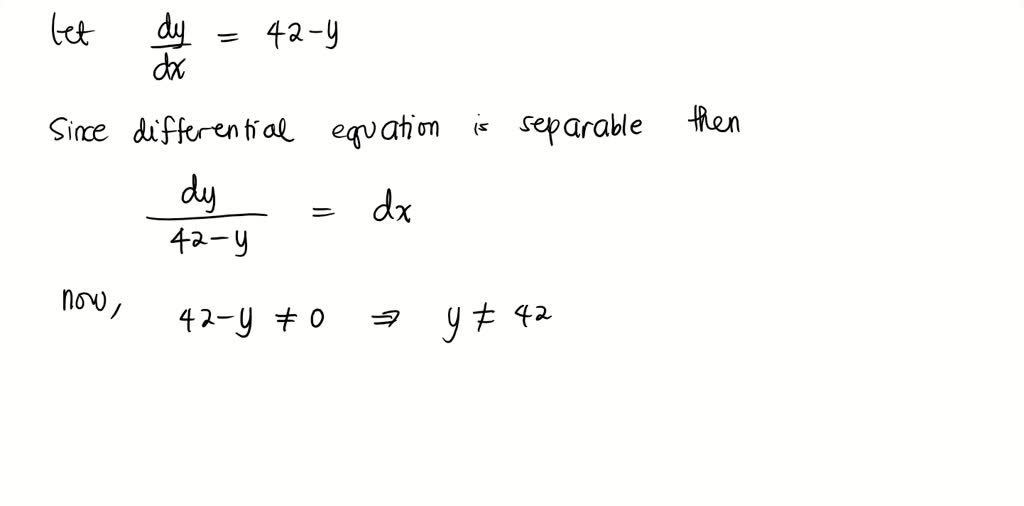 let dy/dx = 42-y
Since differential equation is separable then
dy/42-y = dx
now, 42-y ≠ 0 ⇒ y ≠ 42